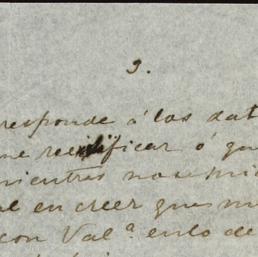 3.
responde á los dat
me rectificar ó qu
mientras no se mi
al en creer que m
con Val.ª en lo de